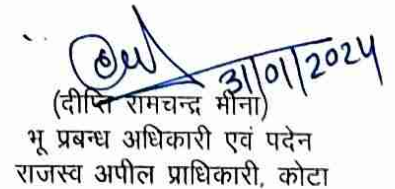 31/01/2024
(दीप्ति रामचन्द्र मीना)
भू प्रबन्ध अधिकारी एवं पदेन
राजस्व अपील प्राधिकारी, कोटा